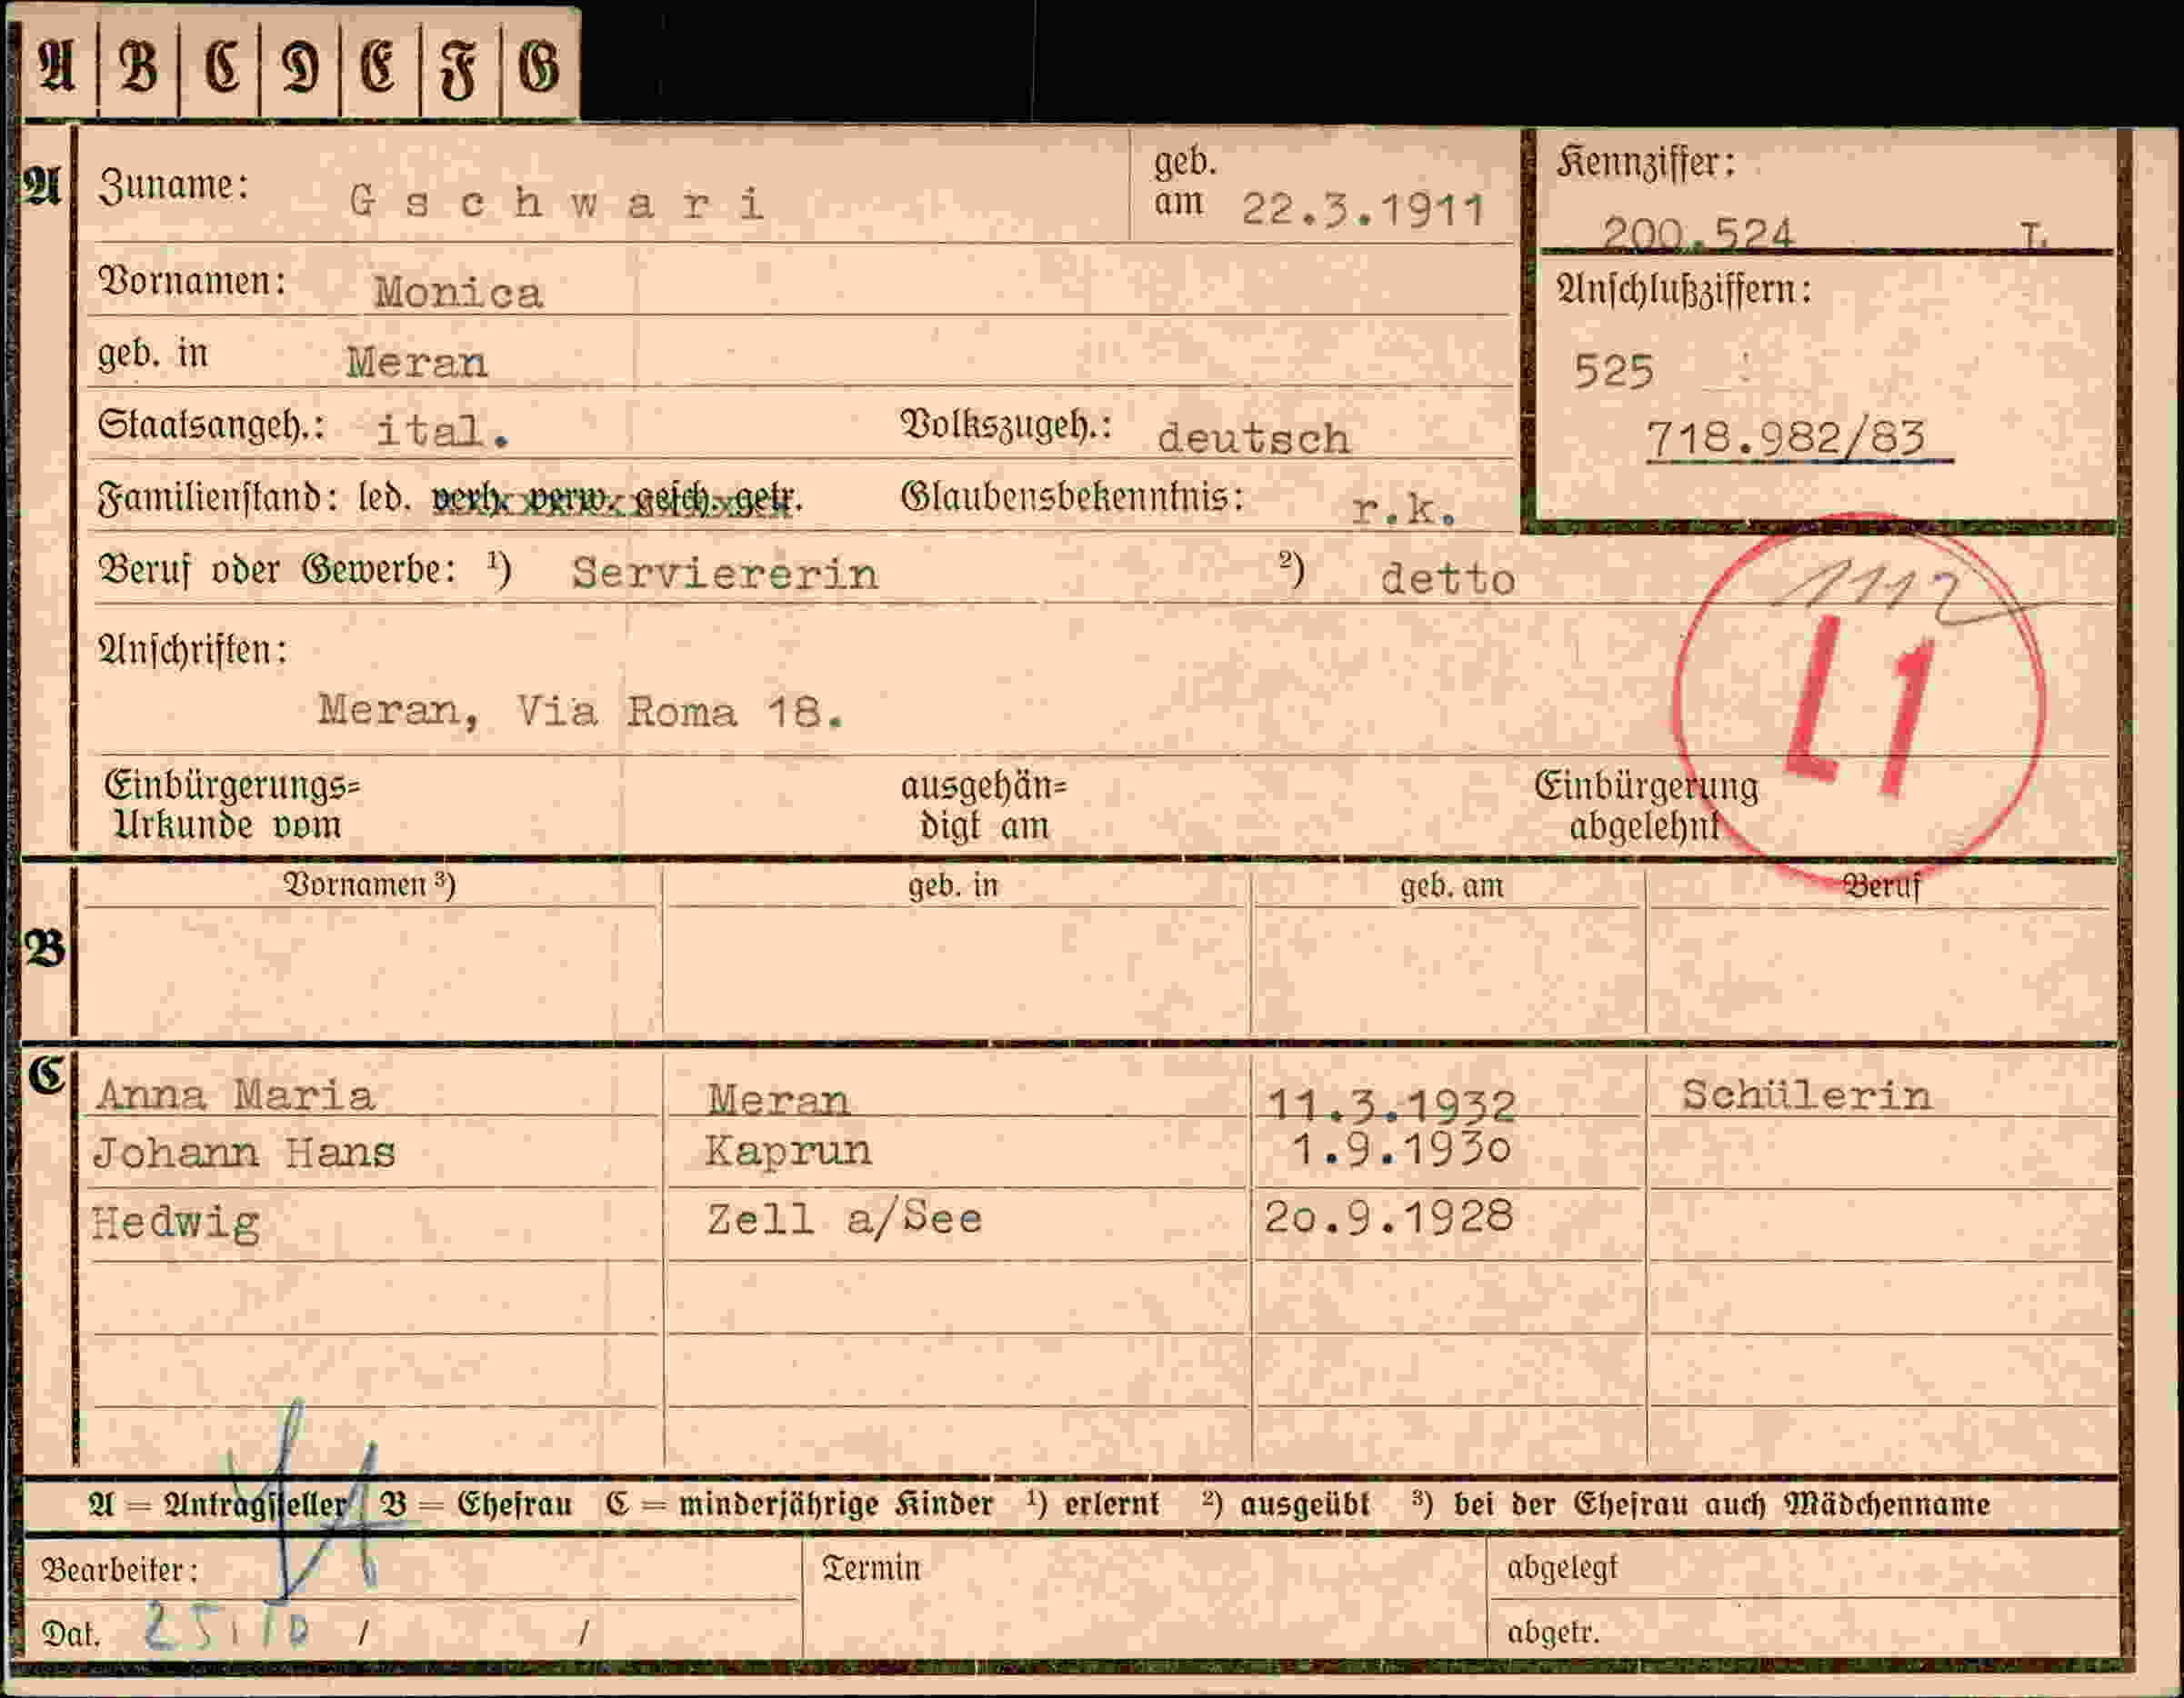 A | B | C | D | E | F | G
A Zuname: Gschwari geb. am 22.3.1911
Kennziffer: 200.524 T.
Vornamen: Monica
Anschlußziffern:
geb. in Meran
525
Staatsangeh.: ital. Volkszugeh.: deutsch
718.982/83
Familienstand: led. verh. verw. gesch. getr. Glaubensbekenntnis: r.k.
Beruf oder Gewerbe: ¹) Serviererin ²) detto
1112
L1
Anschriften:
Meran, Via Roma 18.
Einbürgerungs= ausgehän= Einbürgerung
Urkunde vom digt am abgelehnt
Vornamen ³) geb. in geb. am Beruf
B
C
Anna Maria Meran 11.3.1932 Schülerin
Johann Hans Kaprun 1.9.1930
Hedwig Zell a/See 20.9.1928
A = Antragsteller B = Ehefrau C = minderjährige Kinder ¹) erlernt ²) ausgeübt ³) bei der Ehefrau auch Mädchenname
Bearbeiter: Termin abgelegt
Dat. 25.10 / / abgetr.